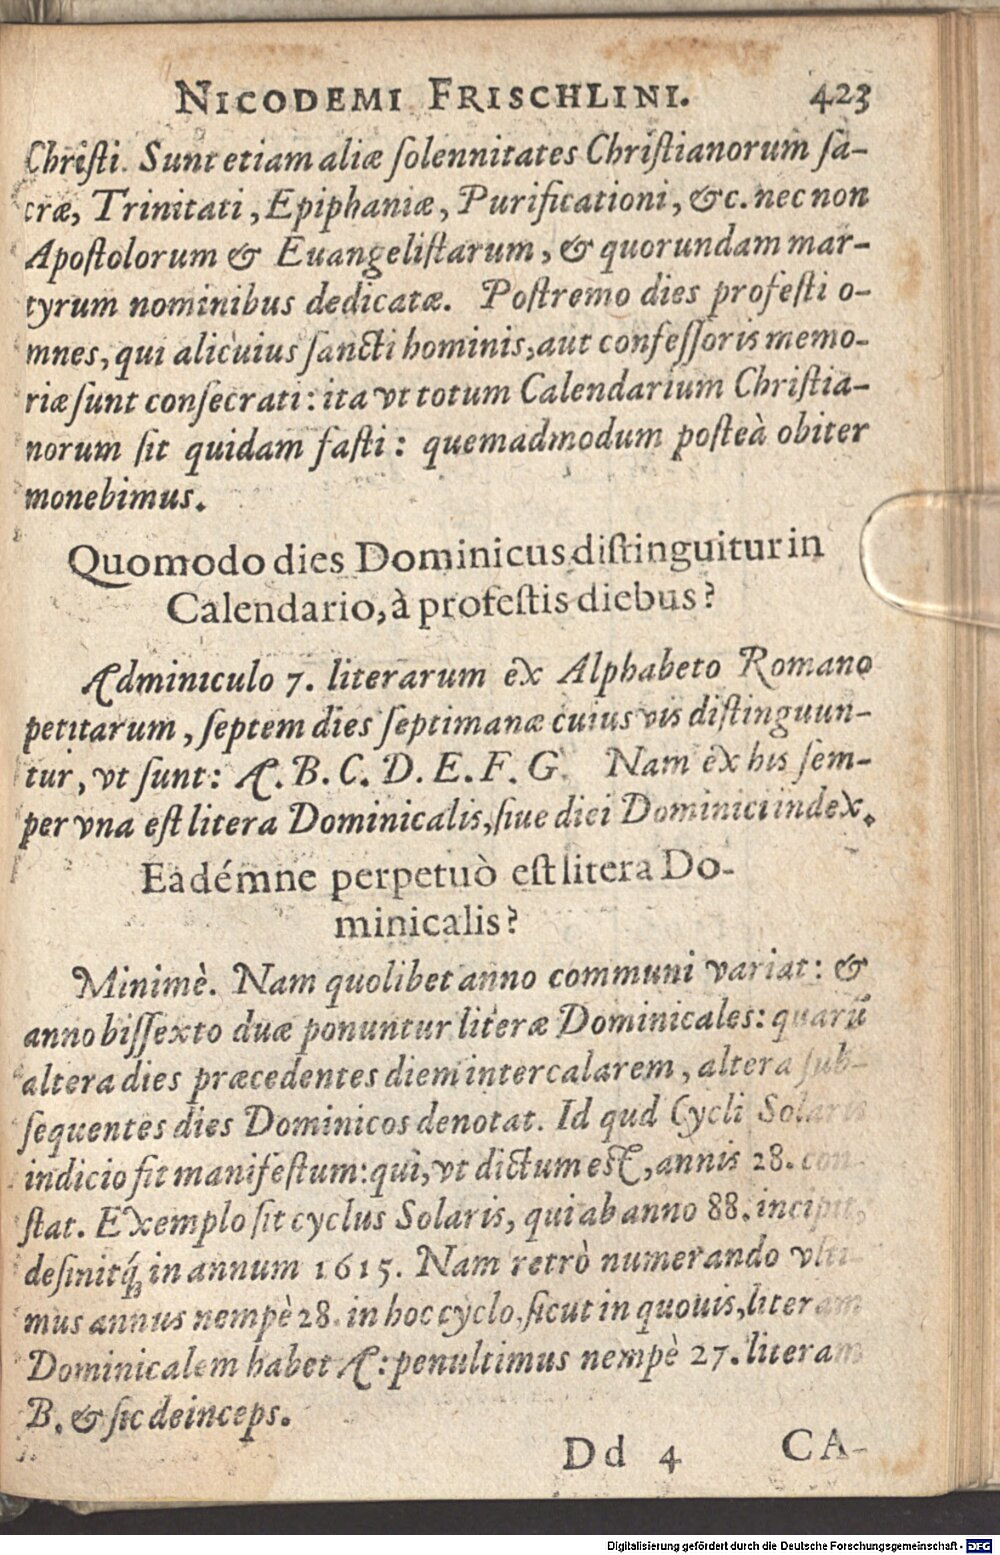 NICODEMI FRISCHLINI. 423
Christi. Sunt etiam aliæ ſolennitates Chriſtianorum ſa-
cræ, Trinitati, Epiphaniæ, Purificationi, &c. nec non
Apoſtolorum & Euangeliſtarum, & quorundam mar-
tyrum nominibus dedicatæ. Poſtremo dies profeſti o-
mnes, qui alicuius ſancti hominis, aut confeſſoris memo-
riæ ſunt conſecrati: ita vt totum Calendarium Chriſtia-
norum ſit quidam faſti: quemadmodum poſteà obiter
monebimus.
Quomodo dies Dominicus diſtinguitur in
Calendario, à profeſtis diebus?
Adminiculo 7. literarum ex Alphabeto Romano
petitarum, ſeptem dies ſeptimanæ cuius vis diſtinguun-
tur, vt ſunt: A. B. C. D. E. F. G. Nam ex his ſem-
per vna eſt litera Dominicalis, ſiue diei Dominici index.
Eadémne perpetuò eſt litera Do-
minicalis?
Minimè. Nam quolibet anno communi variat: &
anno biſſexto duæ ponuntur literæ Dominicales: quarū
altera dies præcedentes diem intercalarem, altera ſub-
ſequentes dies Dominicos denotat. Id qud Cycli Solaris
indicio fit manifeſtum: qui, vt dictum eſt, annis 28. con-
ſtat. Exemplo ſit cyclus Solaris, qui ab anno 88. incipit,
deſinitq́; in annum 1615. Nam retrò numerando vlti-
mus annus nempè 28. in hoc cyclo, ſicut in quouis, literam
Dominicalem habet A: penultimus nempè 27. literam
B. & ſic deinceps.
Dd 4 CA-
Digitalisierung gefördert durch die Deutsche Forschungsgemeinschaft - DFG